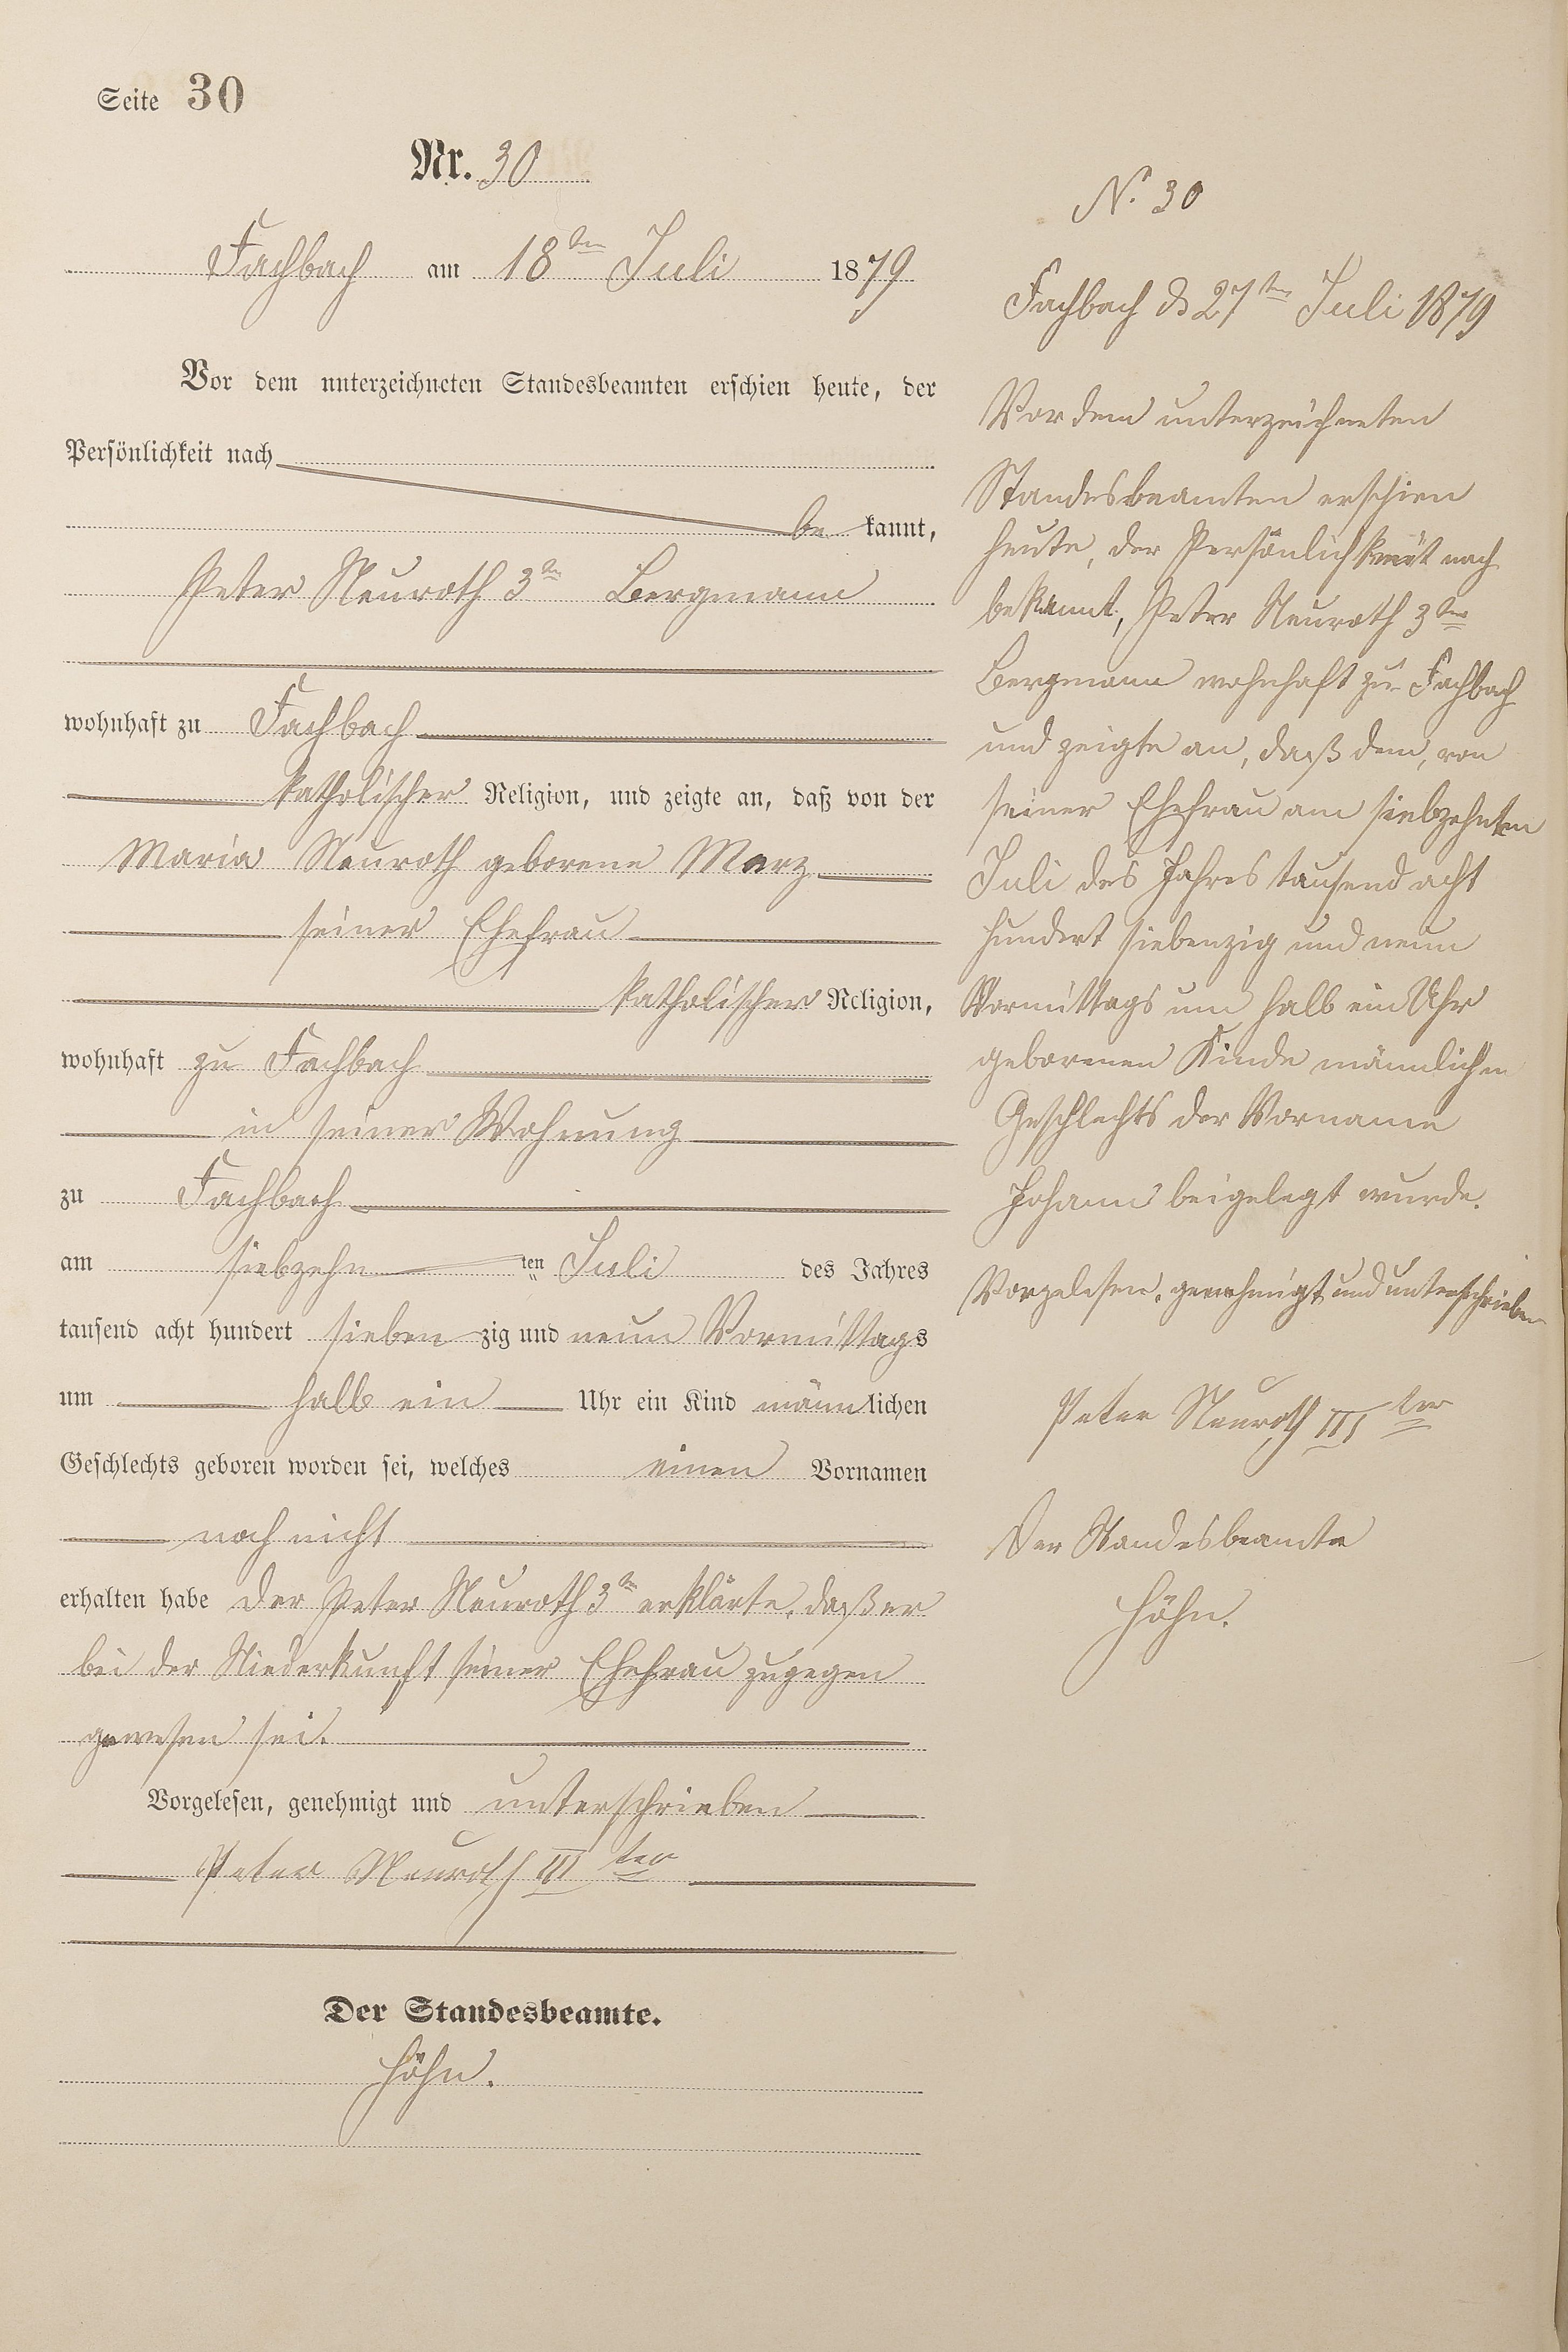 Seite 30
Nr. 30
Fachbach am 18ten Juli 1879
Vor dem unterzeichneten Standesbeamten erschien heute, der
Persönlichkeit nach
be kannt,
Peter Neuroth 3ter Bergmann
wohnhaft zu Fachbach
katholischer Religion, und zeigte an, daß von der
Maria Neuroth geborene Marz
seiner Ehefrau
katholischer Religion,
wohnhaft zu Fachbach
in seiner Wohnung
zu Fachbach
am siebzehn ten Juli des Jahres
tausend acht hundert sieben zig und neun Vormittags
um halb ein Uhr ein Kind männlichen
Geschlechts geboren worden sei, welches einen Vornamen
noch nicht
erhalten habe Der Peter Neuroth 3ter erklärte, daß er
bei der Niederkunft seiner Ehefrau zugegen
gewesen sei.
Vorgelesen, genehmigt und unterschrieben
Peter Neuroth III ter
Der Standesbeamte.
Höhn.
N. 30
Fachbach d 27ten Juli 1879
Vor dem unterzeichneten
Standesbeamten erschien
heute, der Persönlichkeit nach
bekannt, Peter Neuroth 3ter
Bergmann wohnhaft zu Fachbach
und zeigte an, daß dem, von
seiner Ehefrau am siebzehnten
Juli des Jahres tausend acht
hundert siebenzig und neun
Vormittags um halb ein Uhr
geborenen Kinde männlichen
Geschlechts der Vorname
Johann beigelegt wurde.
Vorgelesen, genehmigt und unterschrieben
Peter Neuroth III ter
Der Standesbeamte
Höhn.